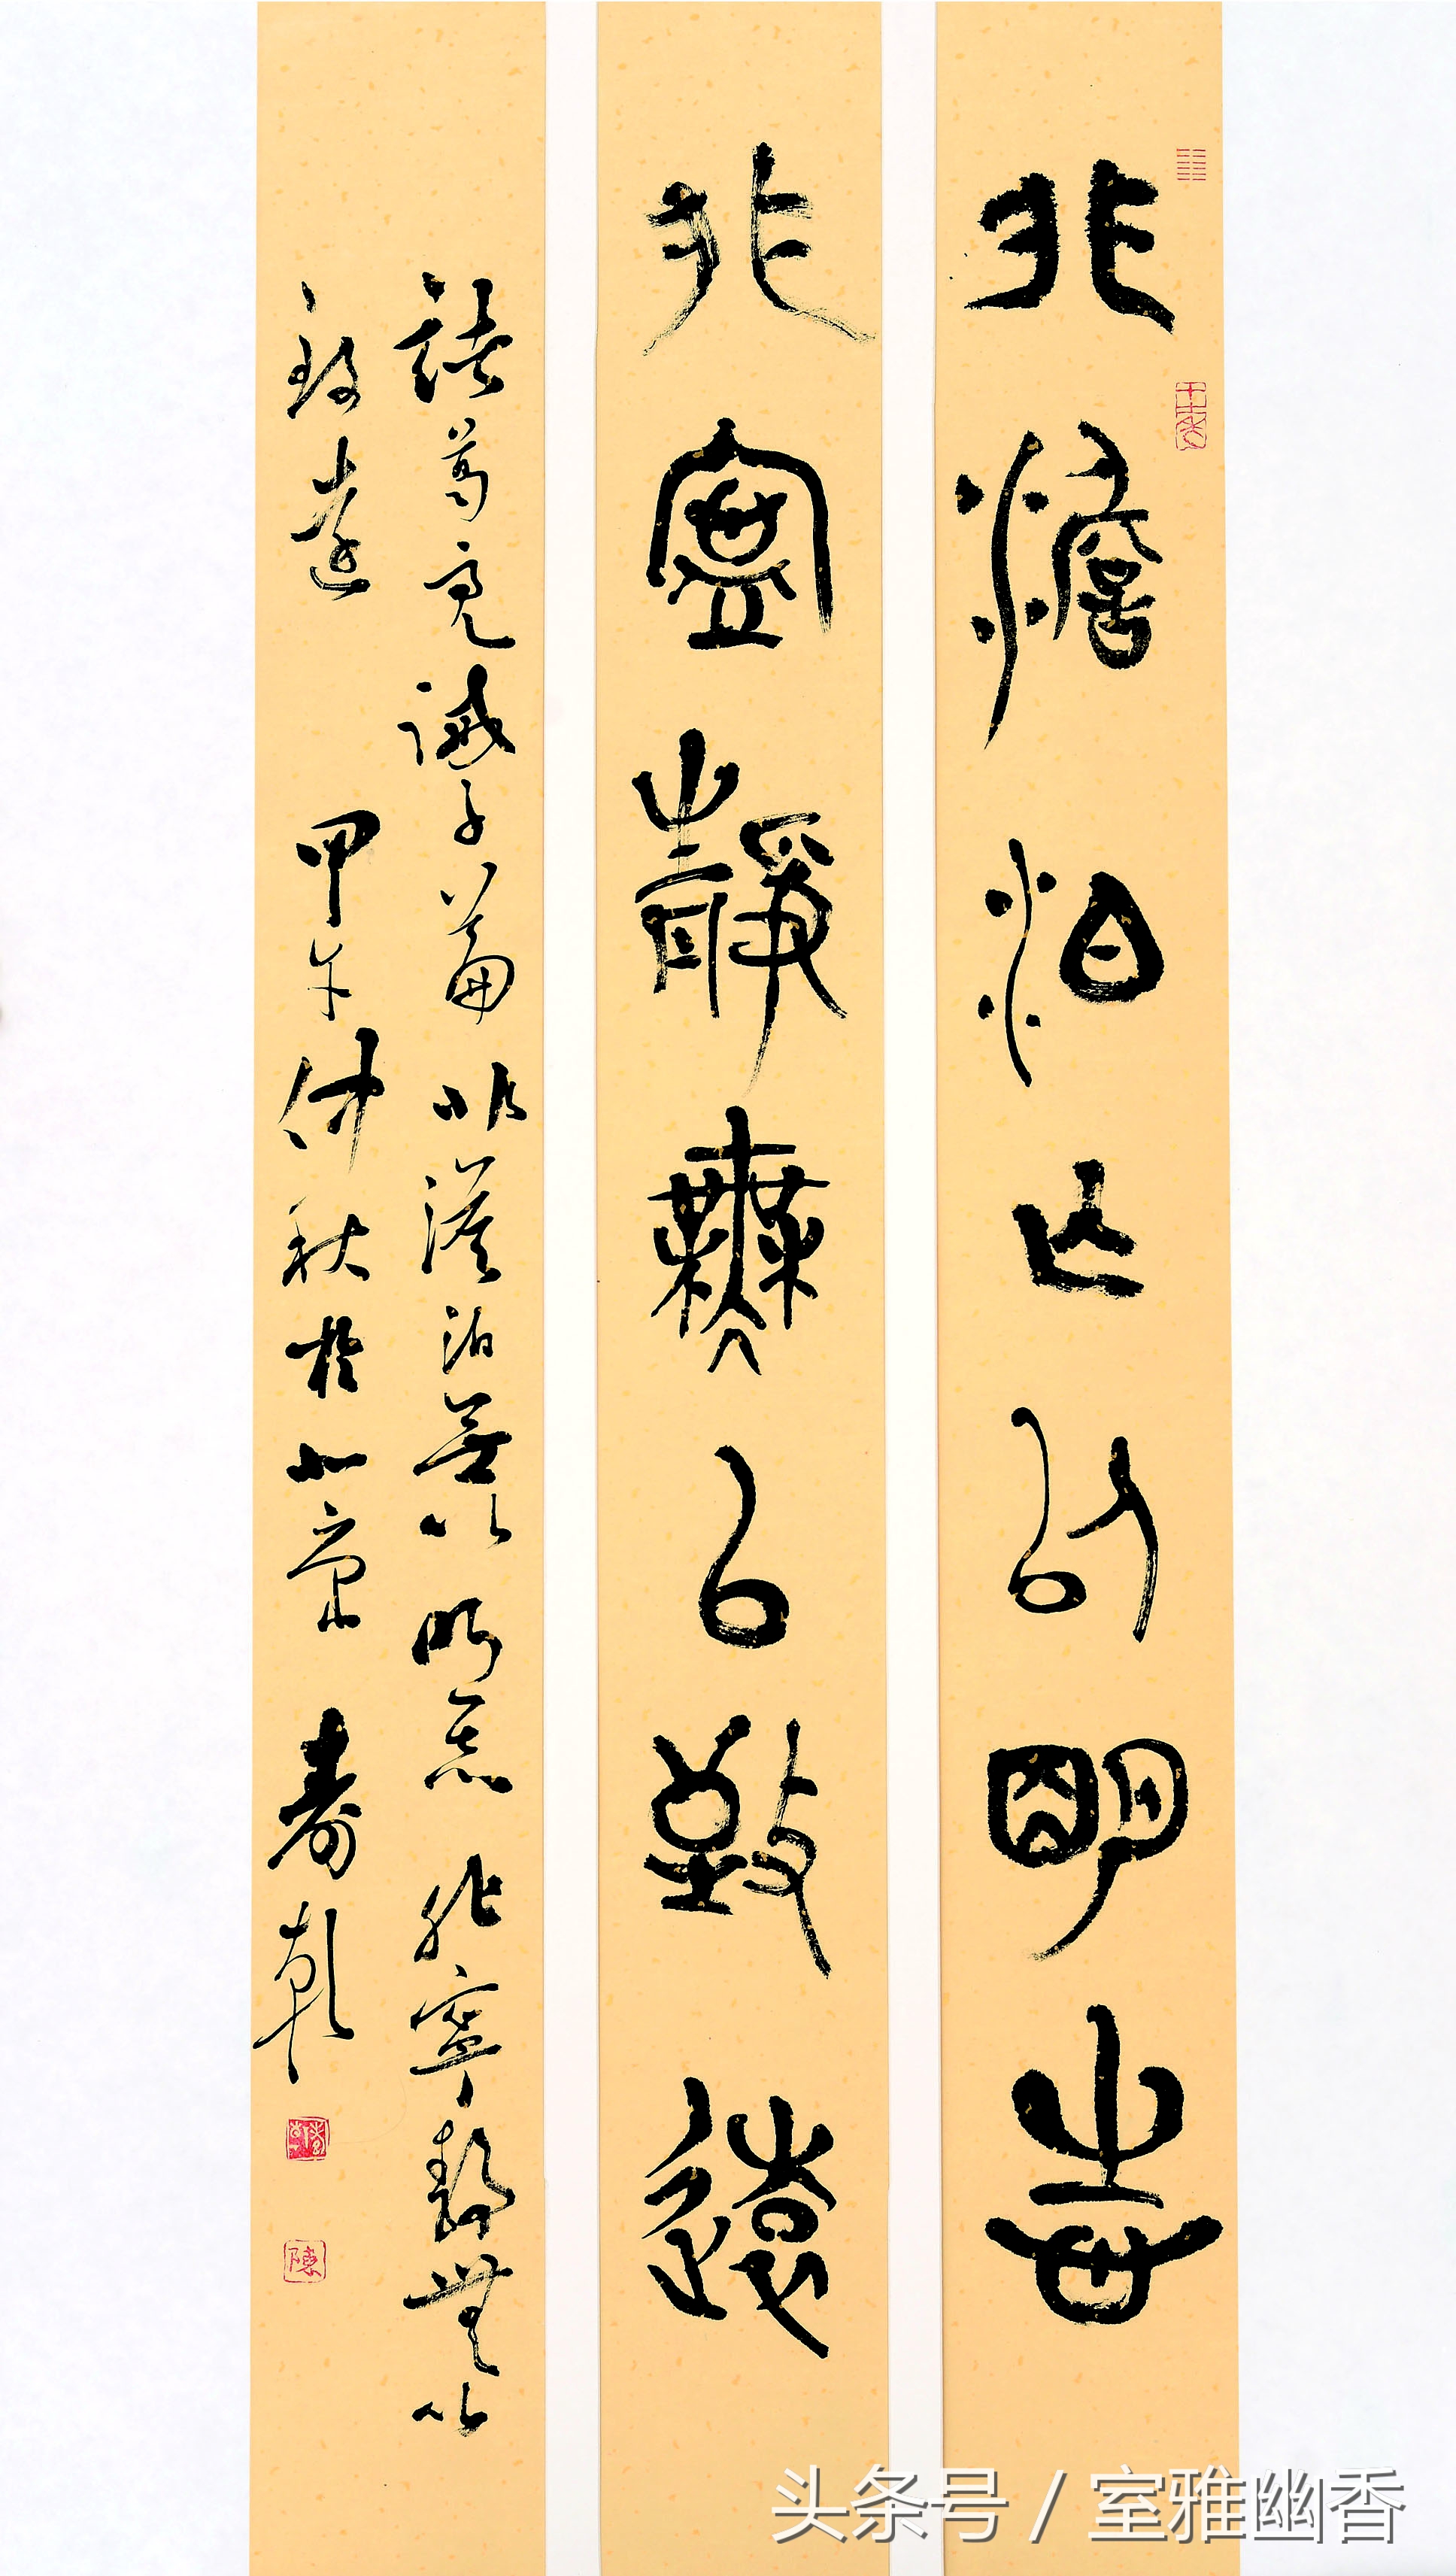 非澹泊亡以明志
非寧靜無以致遠
諸葛亮誡子篇非澹泊無以明志非寧靜無以
致遠 甲午仲秋於北京 壽乾
陳
头条号 / 室雅幽香